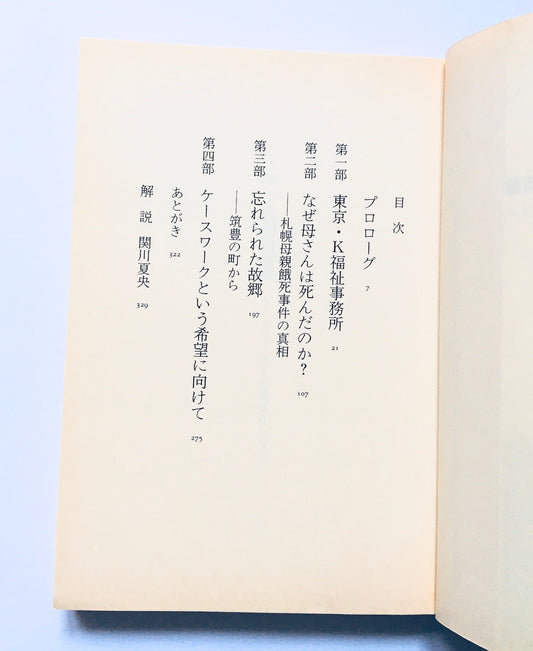 目次
プロローグ 7
第一部 東京・K福祉事務所 21
第二部 なぜ母さんは死んだのか? 107
──札幌母親餓死事件の真相
第三部 忘れられた故郷 197
──筑豊の町から
第四部 ケースワークという希望に向けて 275
あとがき 322
解説 関川夏央 329